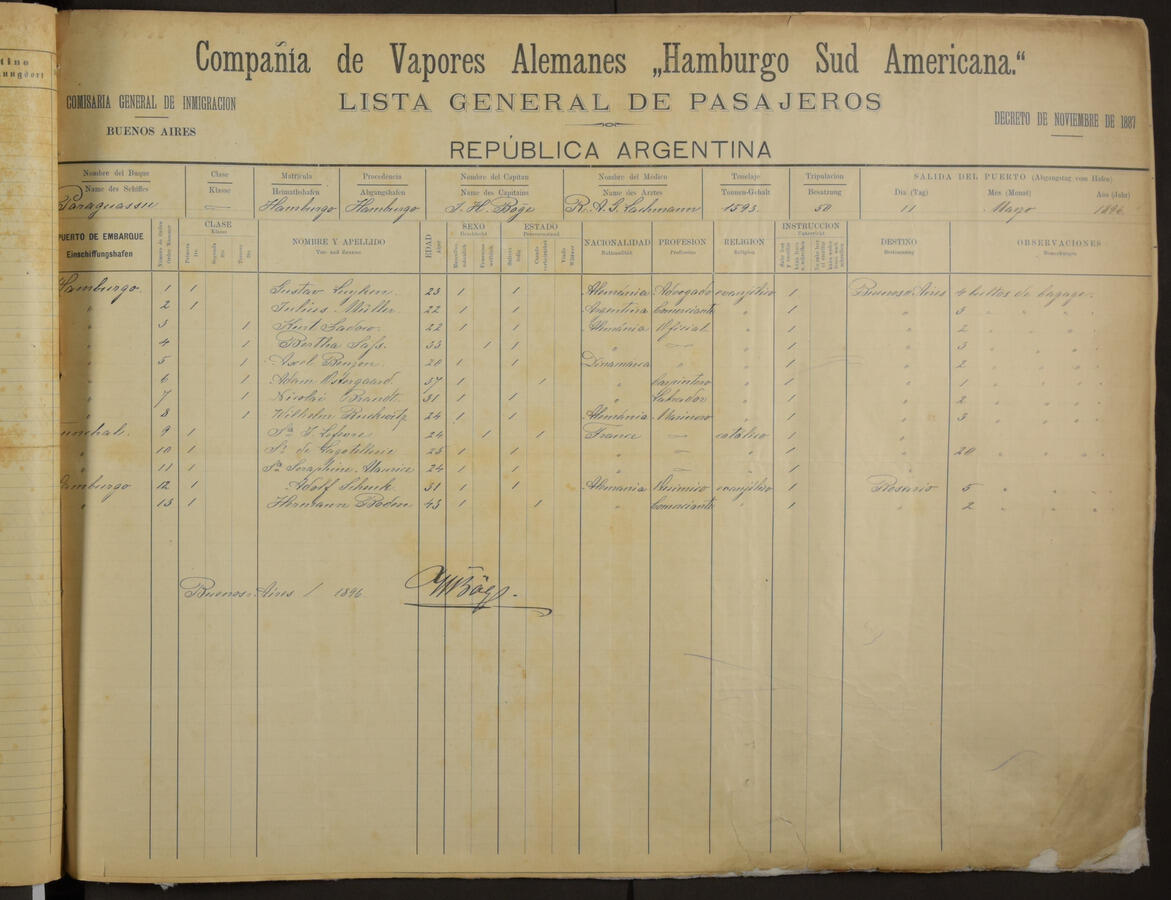 tino
ungdort
Compañia de Vapores Alemanes „Hamburgo Sud Americana.“
COMISARIA GENERAL DE INMIGRACION
BUENOS AIRES
LISTA GENERAL DE PASAJEROS
DECRETO DE NOVIEMBRE DE 1887
REPÚBLICA ARGENTINA
Nombre del Buque Clase Matricula Procedencia Nombre del Capitan Nombre del Médico Tonelaje Tripulacion SALIDA DEL PUERTO (Abgangstag vom Hafen)
Name des Schiffes Klasse Heimathshafen Abgangshafen Name des Capitains Name des Arztes Tonnen-Gehalt Besatzung Dia (Tag) Mes (Monat) Año (Jahr)
Paraguassu — Hamburgo Hamburgo J. H. Böge R. A. G. Lachmann 1593. 50 11 Mayo 1896
PUERTO DE EMBARQUE Einschiffungshafen CLASE Klasse NOMBRE Y APELLIDO EDAD SEXO ESTADO NACIONALIDAD PROFESION RELIGION INSTRUCCION DESTINO OBSERVACIONES
Hamburgo 1 1 Gustav 23 1 1 Alemánia Advogado evanjélico 1 Buenos Aires 4 bultos de bagage.
" 2 1 Julius Müller 22 1 1 Argentina Comerciante " 1 " 3 " " "
" 3 1 Kurt Sadow 22 1 1 Alemánia Oficial " 1 " 2 " " "
" 4 1 Bertha Saſs 33 1 1 " — " 1 " 3 " " "
" 5 1 Axel 20 1 1 Dinamárca " " 1 " 2 " " "
" 6 1 Adam Ostergaard 37 1 1 " Carpintero " 1 " 1 " " "
" 7 1 Nicolai Brandt 31 1 1 " Labrador " 1 " 2 " " "
" 8 1 Wilhelm 24 1 1 Alemánia Marinero " 1 " 3 " " "
Funchal 9 1 Sra J. Lefevre 24 1 1 France — católico 1 "
" 10 1 Sr de Lagotellerie 25 1 1 " — " 1 " 20 " " "
" 11 1 Seraphine Maurice 24 1 " — " 1 "
Hamburgo 12 1 Adolf Schenk 31 1 1 Alemania Quimico evanjélico 1 Rosario 5 " " "
" 13 1 Hermann Boden 43 1 1 " Comerciante " 1 " 2 " " "
Buenos-Aires / 1896
Böge